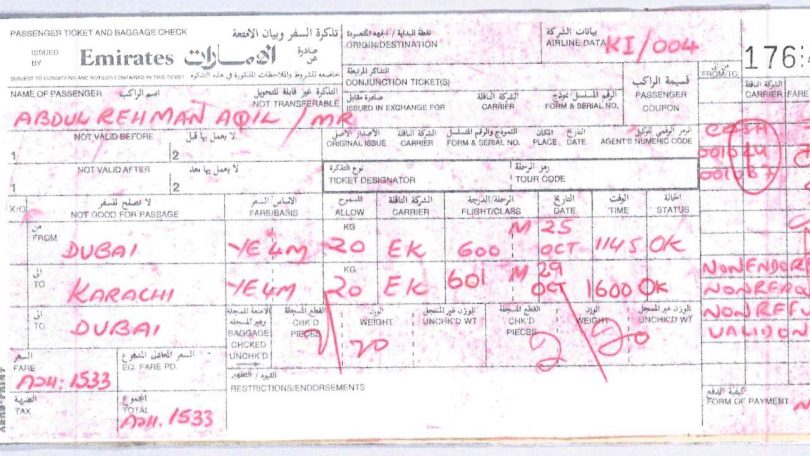 PASSENGER TICKET AND BAGGAGE CHECK تذكرة السفر وبيان الامتعة
ISSUED BY Emirates الإمارات صادرة عن
SUBJECT TO CONDITIONS AND NOTICES CONTAINED IN THIS TICKET
نقطة البداية / الجهة المقصودة
ORIGIN/DESTINATION
بيانات الشركة
AIRLINE DATA KI/004
176:
التذاكر المرتبطة
CONJUNCTION TICKET(S)
NAME OF PASSENGER اسم الراكب
التذكرة غير قابلة للتحويل
NOT TRANSFERABLE
ABDUL REHMAN AQIL / MR
صادرة مقابل
ISSUED IN EXCHANGE FOR
الشركة الناقلة
CARRIER
الرقم المسلسل / نموذج
FORM & SERIAL NO.
قسيمة الراكب
PASSENGER COUPON
من/الى
FROM/TO
الشركة الناقلة
CARRIER FARE
NOT VALID BEFORE لا يعمل بها قبل
1 2
الاصدار الأصلي
ORIGINAL ISSUE
الشركة الناقلة
CARRIER
النموذج والرقم المسلسل
FORM & SERIAL NO.
المكان
PLACE
التاريخ
DATE
الرمز الرقمي للوكيل
AGENT'S NUMERIC CODE
CASH
NOT VALID AFTER لا يعمل بها بعد
1 2
نوع التذكرة
TICKET DESIGNATOR
رمز الرحلة
TOUR CODE
X/O لا تصلح للسفر
NOT GOOD FOR PASSAGE
الاساس السعر
FARE/BASIS
المسموح
ALLOW
الشركة الناقلة
CARRIER
الرحلة/الدرجة
FLIGHT/CLASS
التاريخ
DATE
الوقت
TIME
الحالة
STATUS
من
FROM DUBAI YE4M KG 20 EK 600 M 25 OCT 1145 OK
الى
TO KARACHI YE4M KG 20 EK 601 M 29 OCT 1600 OK
NONENDOR
الى
TO DUBAI
الامتعة المسجلة وغير المسجلة
BAGGAGE CHCKED UNCHK'D
القطع المسجلة
CHK'D PIECES
الوزن
WEIGHT 20
الوزن غير المسجل
UNCHK'D WT
القطع المسجلة
CHK'D PIECES 2
الوزن
WEIGHT 20
الوزن غير المسجل
UNCHK'D WT
NONREFU
VALIDON
السعر
FARE
السعر المعادل المدفوع
EQ. FARE PD.
القيود / التظهير
RESTRICTIONS/ENDORSEMENTS
1533
الضريبة
TAX
المجموع
TOTAL
1533
كيفية الدفع
FORM OF PAYMENT